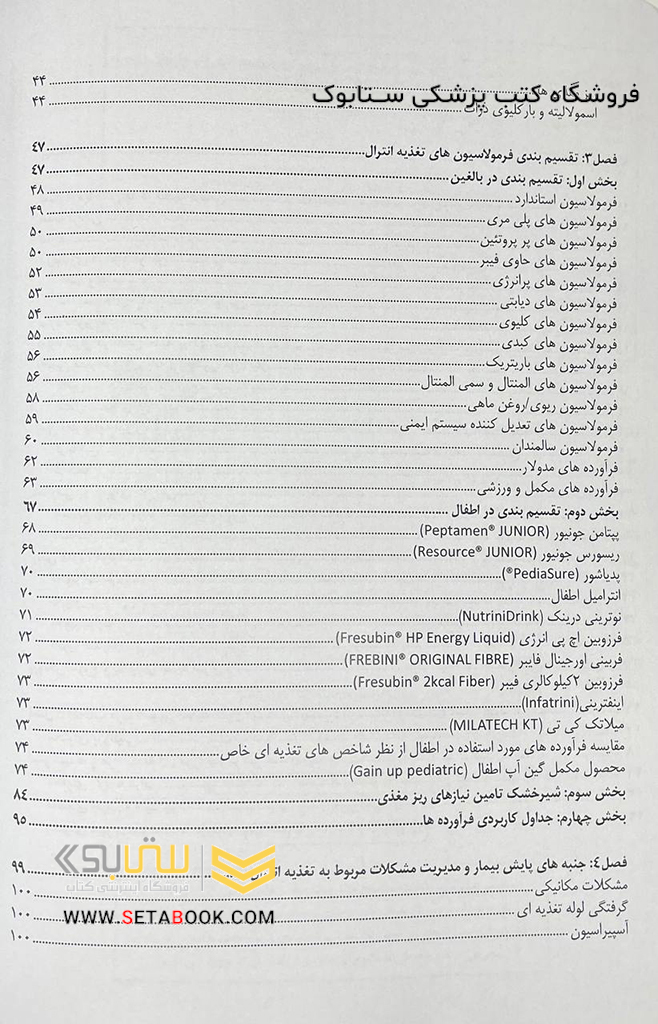 فروشگاه کتب پزشکی ستابوک
۴۴
اسمولالیته و بار کلیوی ذرات ۴۴
فصل۳: تقسیم بندی فرمولاسیون های تغذیه انترال ۴۷
بخش اول: تقسیم بندی در بالغین ۴۷
فرمولاسیون استاندارد ۴۸
فرمولاسیون های پلی مری ۴۹
فرمولاسیون های پر پروتئین ۵۰
فرمولاسیون های حاوی فیبر ۵۰
فرمولاسیون های پرانرژی ۵۲
فرمولاسیون های دیابتی ۵۳
فرمولاسیون های کلیوی ۵۴
فرمولاسیون های کبدی ۵۵
فرمولاسیون های باریتریک ۵۶
فرمولاسیون های المنتال و سمی المنتال ۵۶
فرمولاسیون ریوی/روغن ماهی ۵۸
فرمولاسیون های تعدیل کننده سیستم ایمنی ۵۹
فرمولاسیون سالمندان ۶۰
فرآورده های مدولار ۶۲
فرآورده های مکمل و ورزشی ۶۳
بخش دوم: تقسیم بندی در اطفال ۶۷
پپتامن جونیور (Peptamen® JUNIOR) ۶۸
ریسورس جونیور (Resource® JUNIOR) ۶۹
پدیاشور (PediaSure®) ۷۰
انترامیل اطفال ۷۰
نوترینی درینک (NutriniDrink) ۷۱
فرزوبین اچ پی انرژی (Fresubin® HP Energy Liquid) ۷۲
فربینی اورجینال فایبر (FREBINI® ORIGINAL FIBRE) ۷۲
فرزوبین ۲کیلوکالری فیبر (Fresubin® 2kcal Fiber) ۷۳
اینفترینی(Infatrini) ۷۳
میلاتک کی تی (MILATECH KT) ۷۳
مقایسه فرآورده های مورد استفاده در اطفال از نظر شاخص های تغذیه ای خاص ۷۴
محصول مکمل گین آپ اطفال (Gain up pediatric) ۷۴
بخش سوم: شیرخشک تامین نیازهای ریز مغذی ۸۴
بخش چهارم: جداول کاربردی فرآورده ها ۹۵
فصل۴: جنبه های پایش بیمار و مدیریت مشکلات مربوط به تغذیه ۹۹
مشکلات مکانیکی ۱۰۰
گرفتگی لوله تغذیه ای ۱۰۰
آسپیراسیون ۱۰۰
ستابوک
فروشگاه اینترنتی کتاب
WWW.SETABOOK.COM